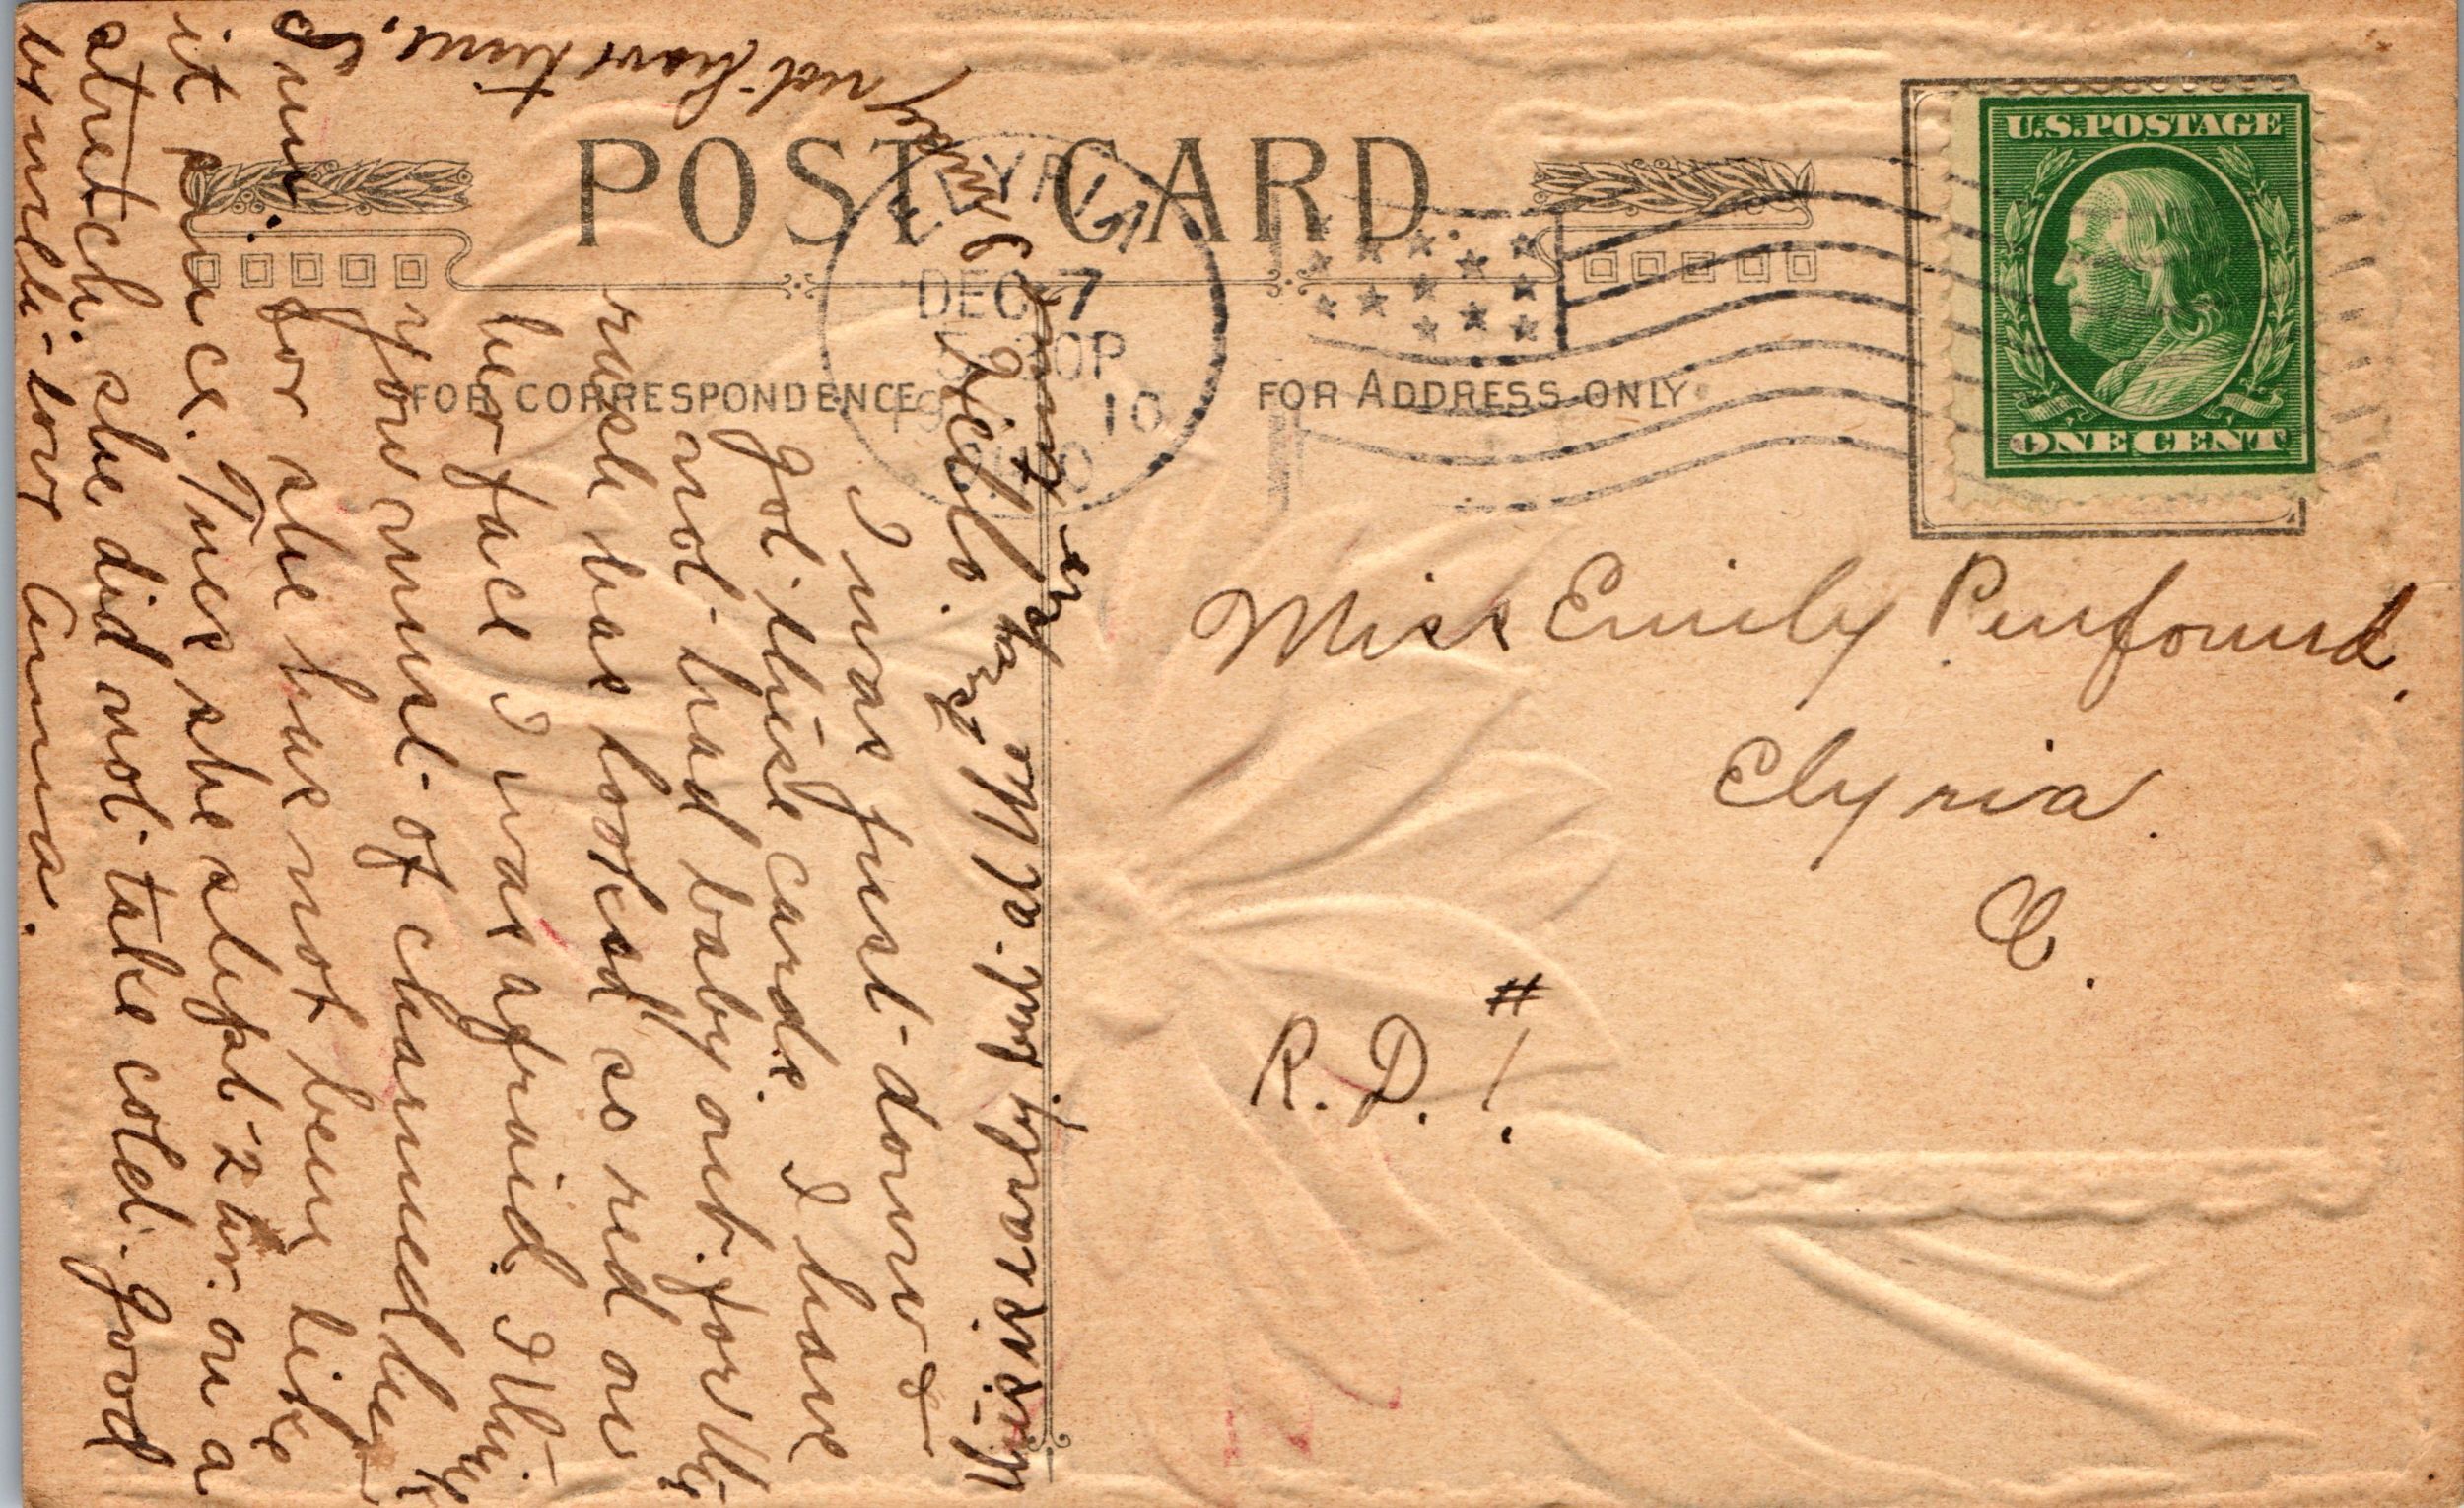 POST CARD.
FOR CORRESPONDENCE
FOR ADDRESS ONLY
U.S. POSTAGE
ONE CENT
ELYRIA
DEC 7
30P
10
Miss Emily Penfound.
Elyria.
O.
R.D. #1.
Hello.
I was just down &
got these cards. I have
not had baby out for the
rash has looked so red on
her face I was afraid. I think
you must of charmed her
for she has not been like
it since. Tues she slept 2 hr. on a
stretch. she did not take cold. good
by with love Anna.
not have time.